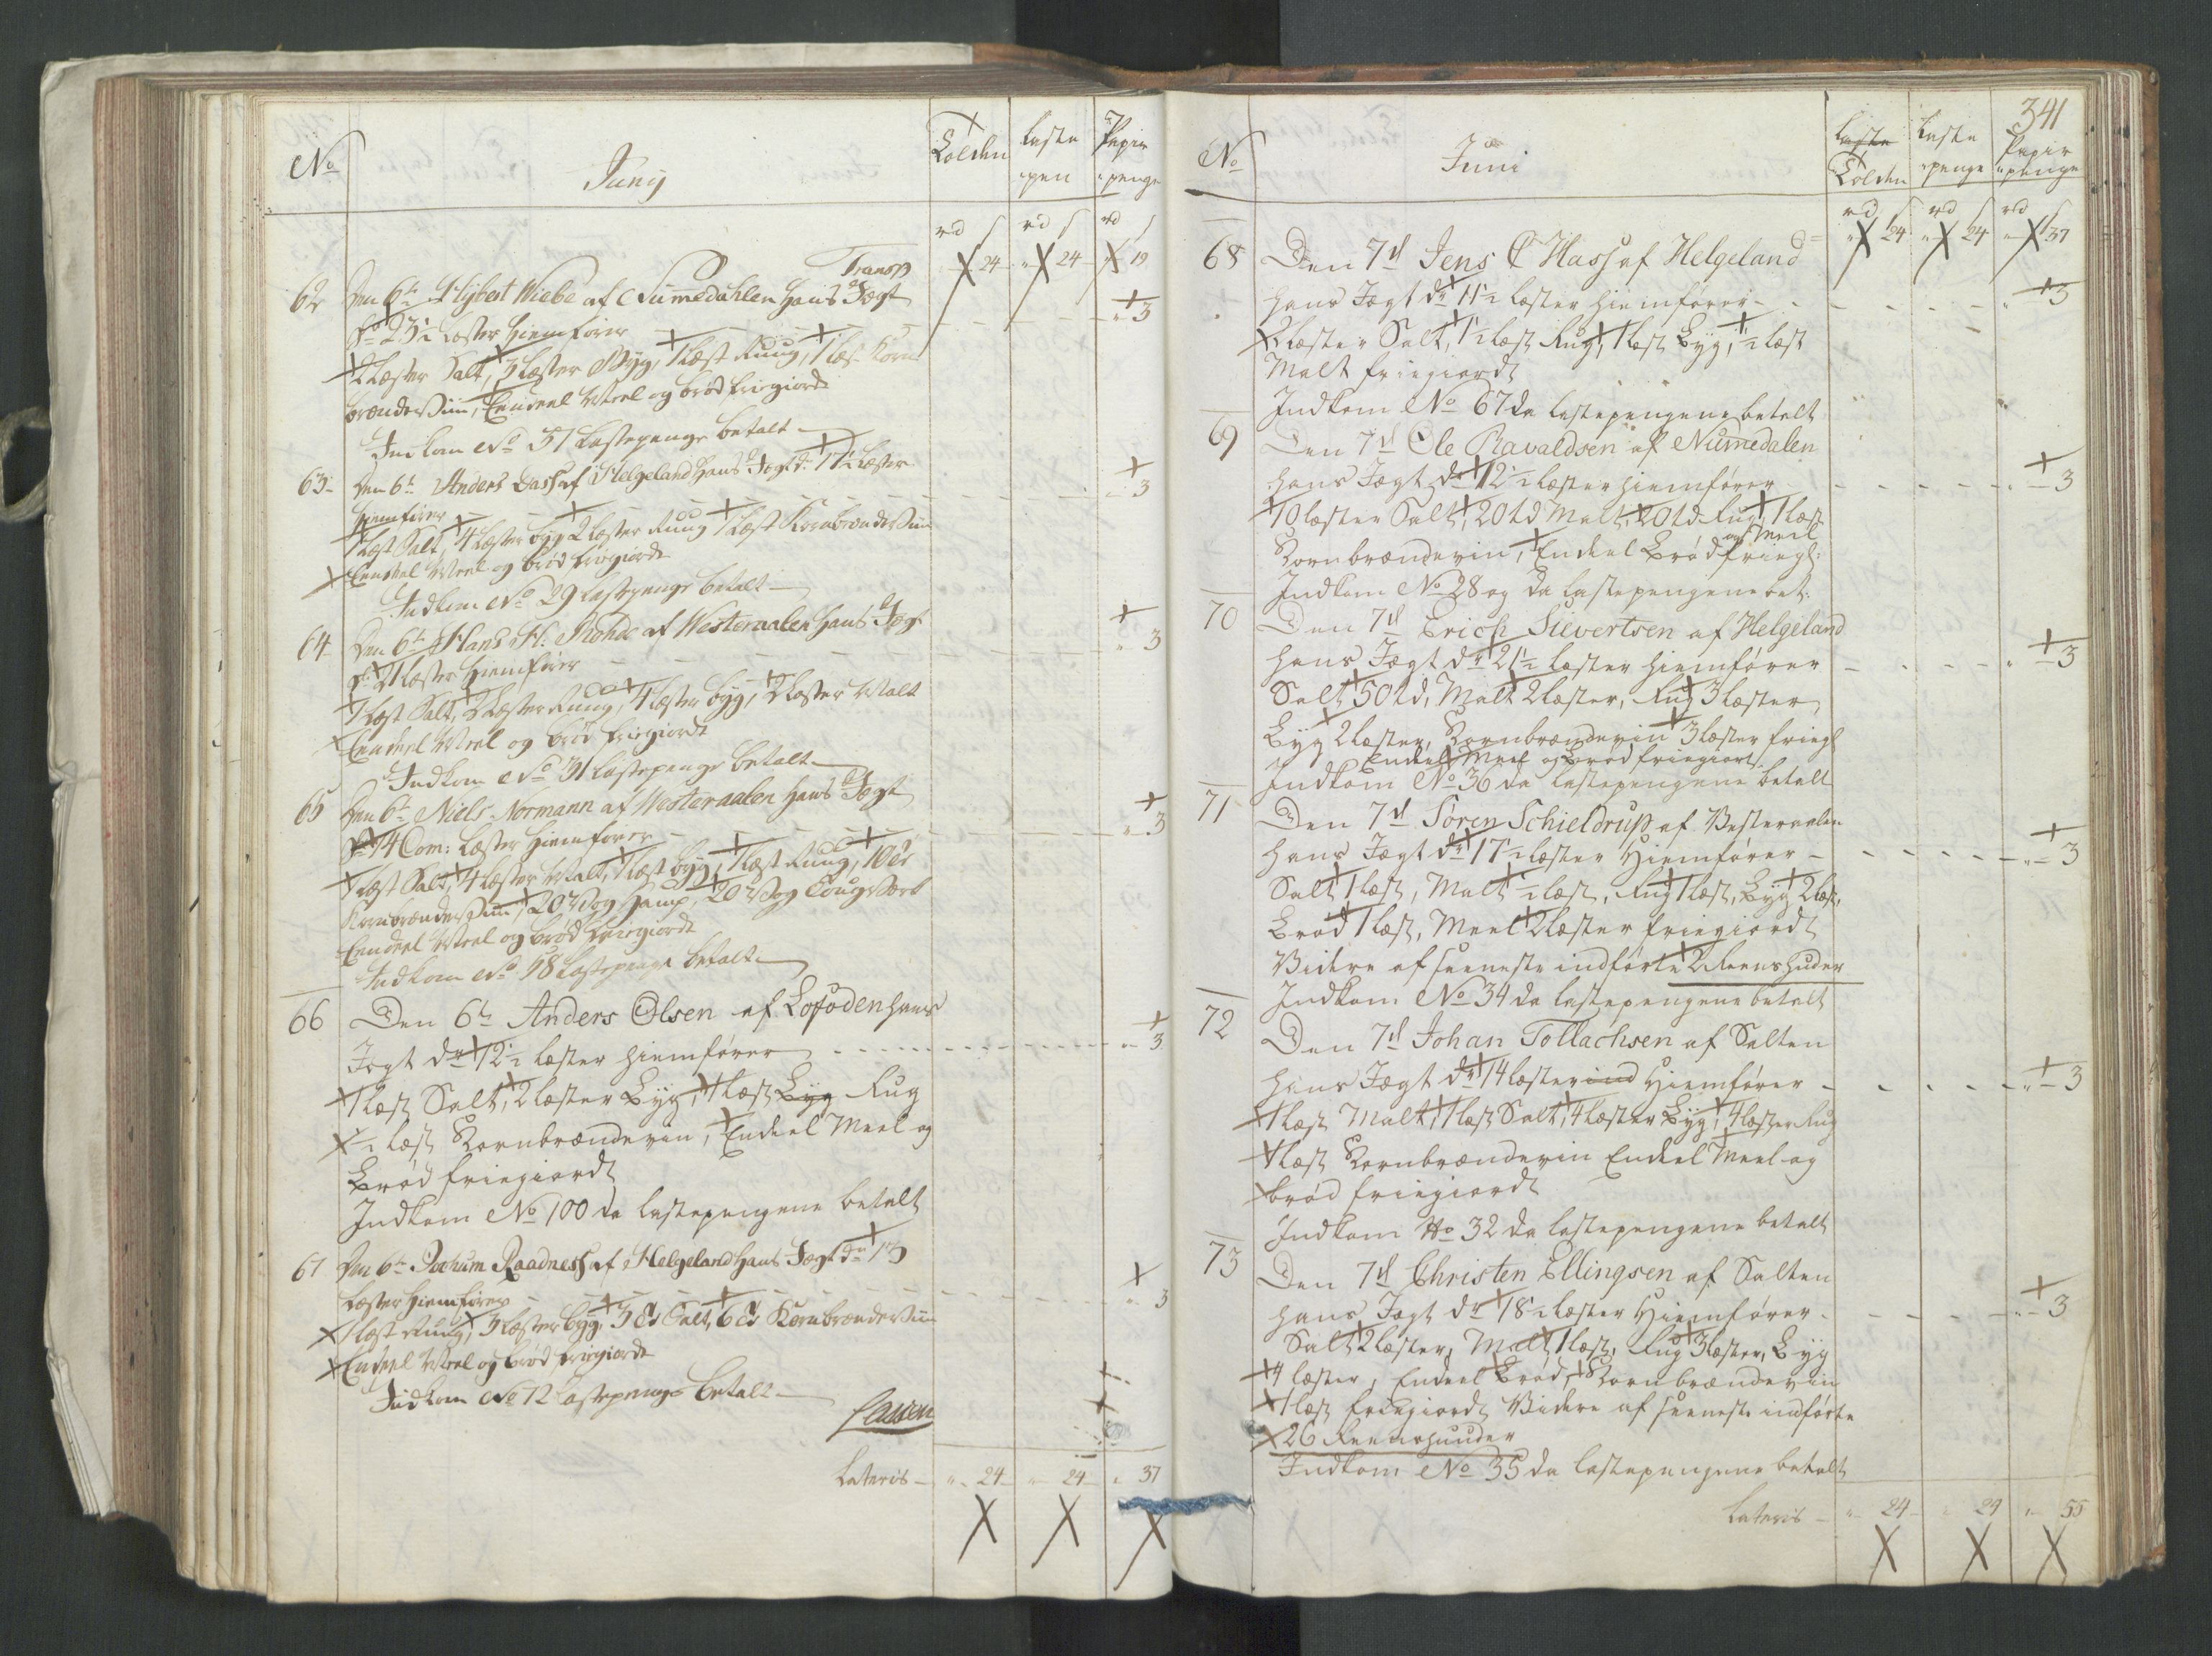 No
Junij
Tolden
Laste
pen
Papir
penge
rd s rd s rd s
Transp
24 24 19
62 Den 6te Wiebe af Numedahlen hans Jægt
dr 23½ Læster hiemfører 3
2 Læster Salt, 3 Læster Byg, 1 Læst Rug, 1 Læst Korn
brændeviin, Eendeel Meel og brød friegiordt
Indkom No 51 Lastepenge betalt
63 Den 6te Anders Dass af Helgeland hans Jægt dr 17½ Læster
hiemfører 3
1 Læst Salt, 4 Læster byg 2 Læster Rug 1 Læst Kornbrændeviin
Eendeel Meel og brød friegiordt
Indkom No 29 Lastepenge betalt
64 Den 6te Hans H: Rohde af Westeraalen hans Jægt
dr 21 Læster hiemfører 3
1 Læst Salt, 2 Læster Rug, 4 Læster byg, 2 Læster Malt
Eendeel Meel og brød friegiordt
Indkom No 31 Lastepenge betalt
65 Den 6te Niels Normann af Westeraalen hans Jægt
dr 14 Com: Læster hiemfører 3
1 Læst Salt, 4 Læster Malt, 1 Læst byg, 1 Læst Rug, 10
Kornbrændeviin, 20 Hamp, 20
Eendeel Meel og brød friegiordt
Indkom No 58 Lastepenge betalt
66 Den 6te Anders Olsen af Lofoden hans
Jægt dr 12½ læster hiemfører 3
1 læst Salt, 2 læster Byg, 1 læst Byg Rug
½ læst Kornbrændeviin, Endeel Meel og
Brød friegiordt
Indkom No 100 da lastepengene betalt
67 Den 6te Jochum Raadness af Helgeland hans Jægt dr 13
Læster hiemfører 3
1 læst Rug, 3 Læster byg, 3 Td Salt, 6 Td Kornbrændeviin
Endeel Meel og brød friegiordt
Indkom No 12 Lastepenge betalt
Lateris 24 24 37
341
No
Juni
Laste
Tolden
Laste
penge
Papir
penge
rd s rd s rd s
24 24 37
68 Den 7d Jens C Hass af Helgeland
hans Jægt dr 11½ læster hiemfører 3
2 læster Salt, ½ læst Rug, 1 læst Byg, ½ læst
Malt friegiordt
Indkom No 67 da lastepengene betalt
69 Den 7d Ole Ravaldsen af Numedalen
hans Jægt dr 12½ læster hiemfører 3
10 læster Salt, 20 td Malt, 20 td Rug, 1 læst
og Meel
Kornbrændeviin, Endeel Brød friegl:
Indkom No 28 og da lastepengene bet:
70 Den 7d Erich Sievertsen af Helgeland
hans Jægt dr 21½ læster hiemfører 3
Salt 50 td, Malt 2 læster, Rug 3 læster,
Byg 2 læster, Kornbrændeviin 3 læster friegl
Endeel Meel og Brød friegiort
Indkom No 36 da lastepengene betalt
71 Den 7d Sören Schieldrup af Vesteraalen
hans Jægt dr 17½ læster Hiemfører 3
Salt 1 læst, Malt ½ læst, Rug 1 læst, Byg 2 læst,
Brød 1 læst, Meel 2 læster friegiordt
Videre af seeneste indførte 2 Reenshuder
Indkom No 34 da lastepengene betalt
72 Den 7d Johan Tollachsen af Salten
hans Jægt dr 14 læster ind Hiemfører 3
1 læst Malt, 1 læst Salt, 4 læster Byg, 4 læster Rug
1 læst Kornbrændeviin Endeel Meel og
brød friegiordt
Indkom No 32 da lastepengene betalt
73 Den 7d Christen Ellingsen af Salten
hans Jægt dr 18½ læster Hiemfører 3
Salt 2 læster, Malt 1 læst, Rug 3 læster, Byg
4 læster, Endeel Brød, Kornbrændeviin
1 læst friegiordt Videre af seeneste indførte
26 Reenshuuder
Indkom No 35 da lastepengene betalt
Lateris 24 24 55